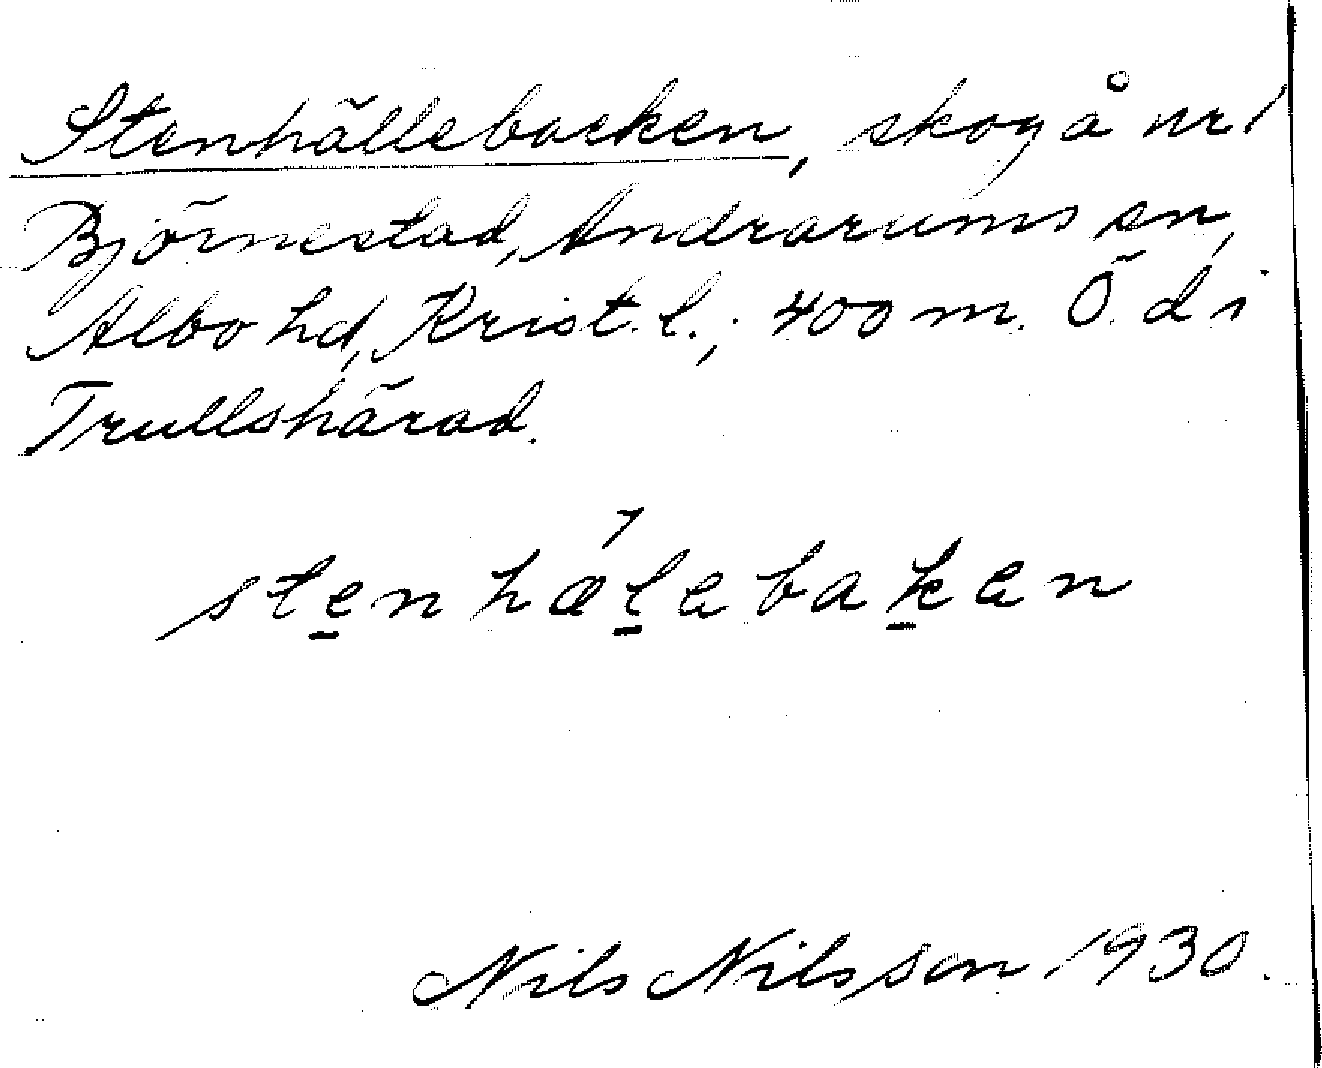 Stenhällebacken, skog å nr 1
Björnestad, Andrarums sn,
Albo hd, Krist. l.; 400 m. Ö. d i
Trullshärad.
stenhælebaken
Nils Nilsson 1930.